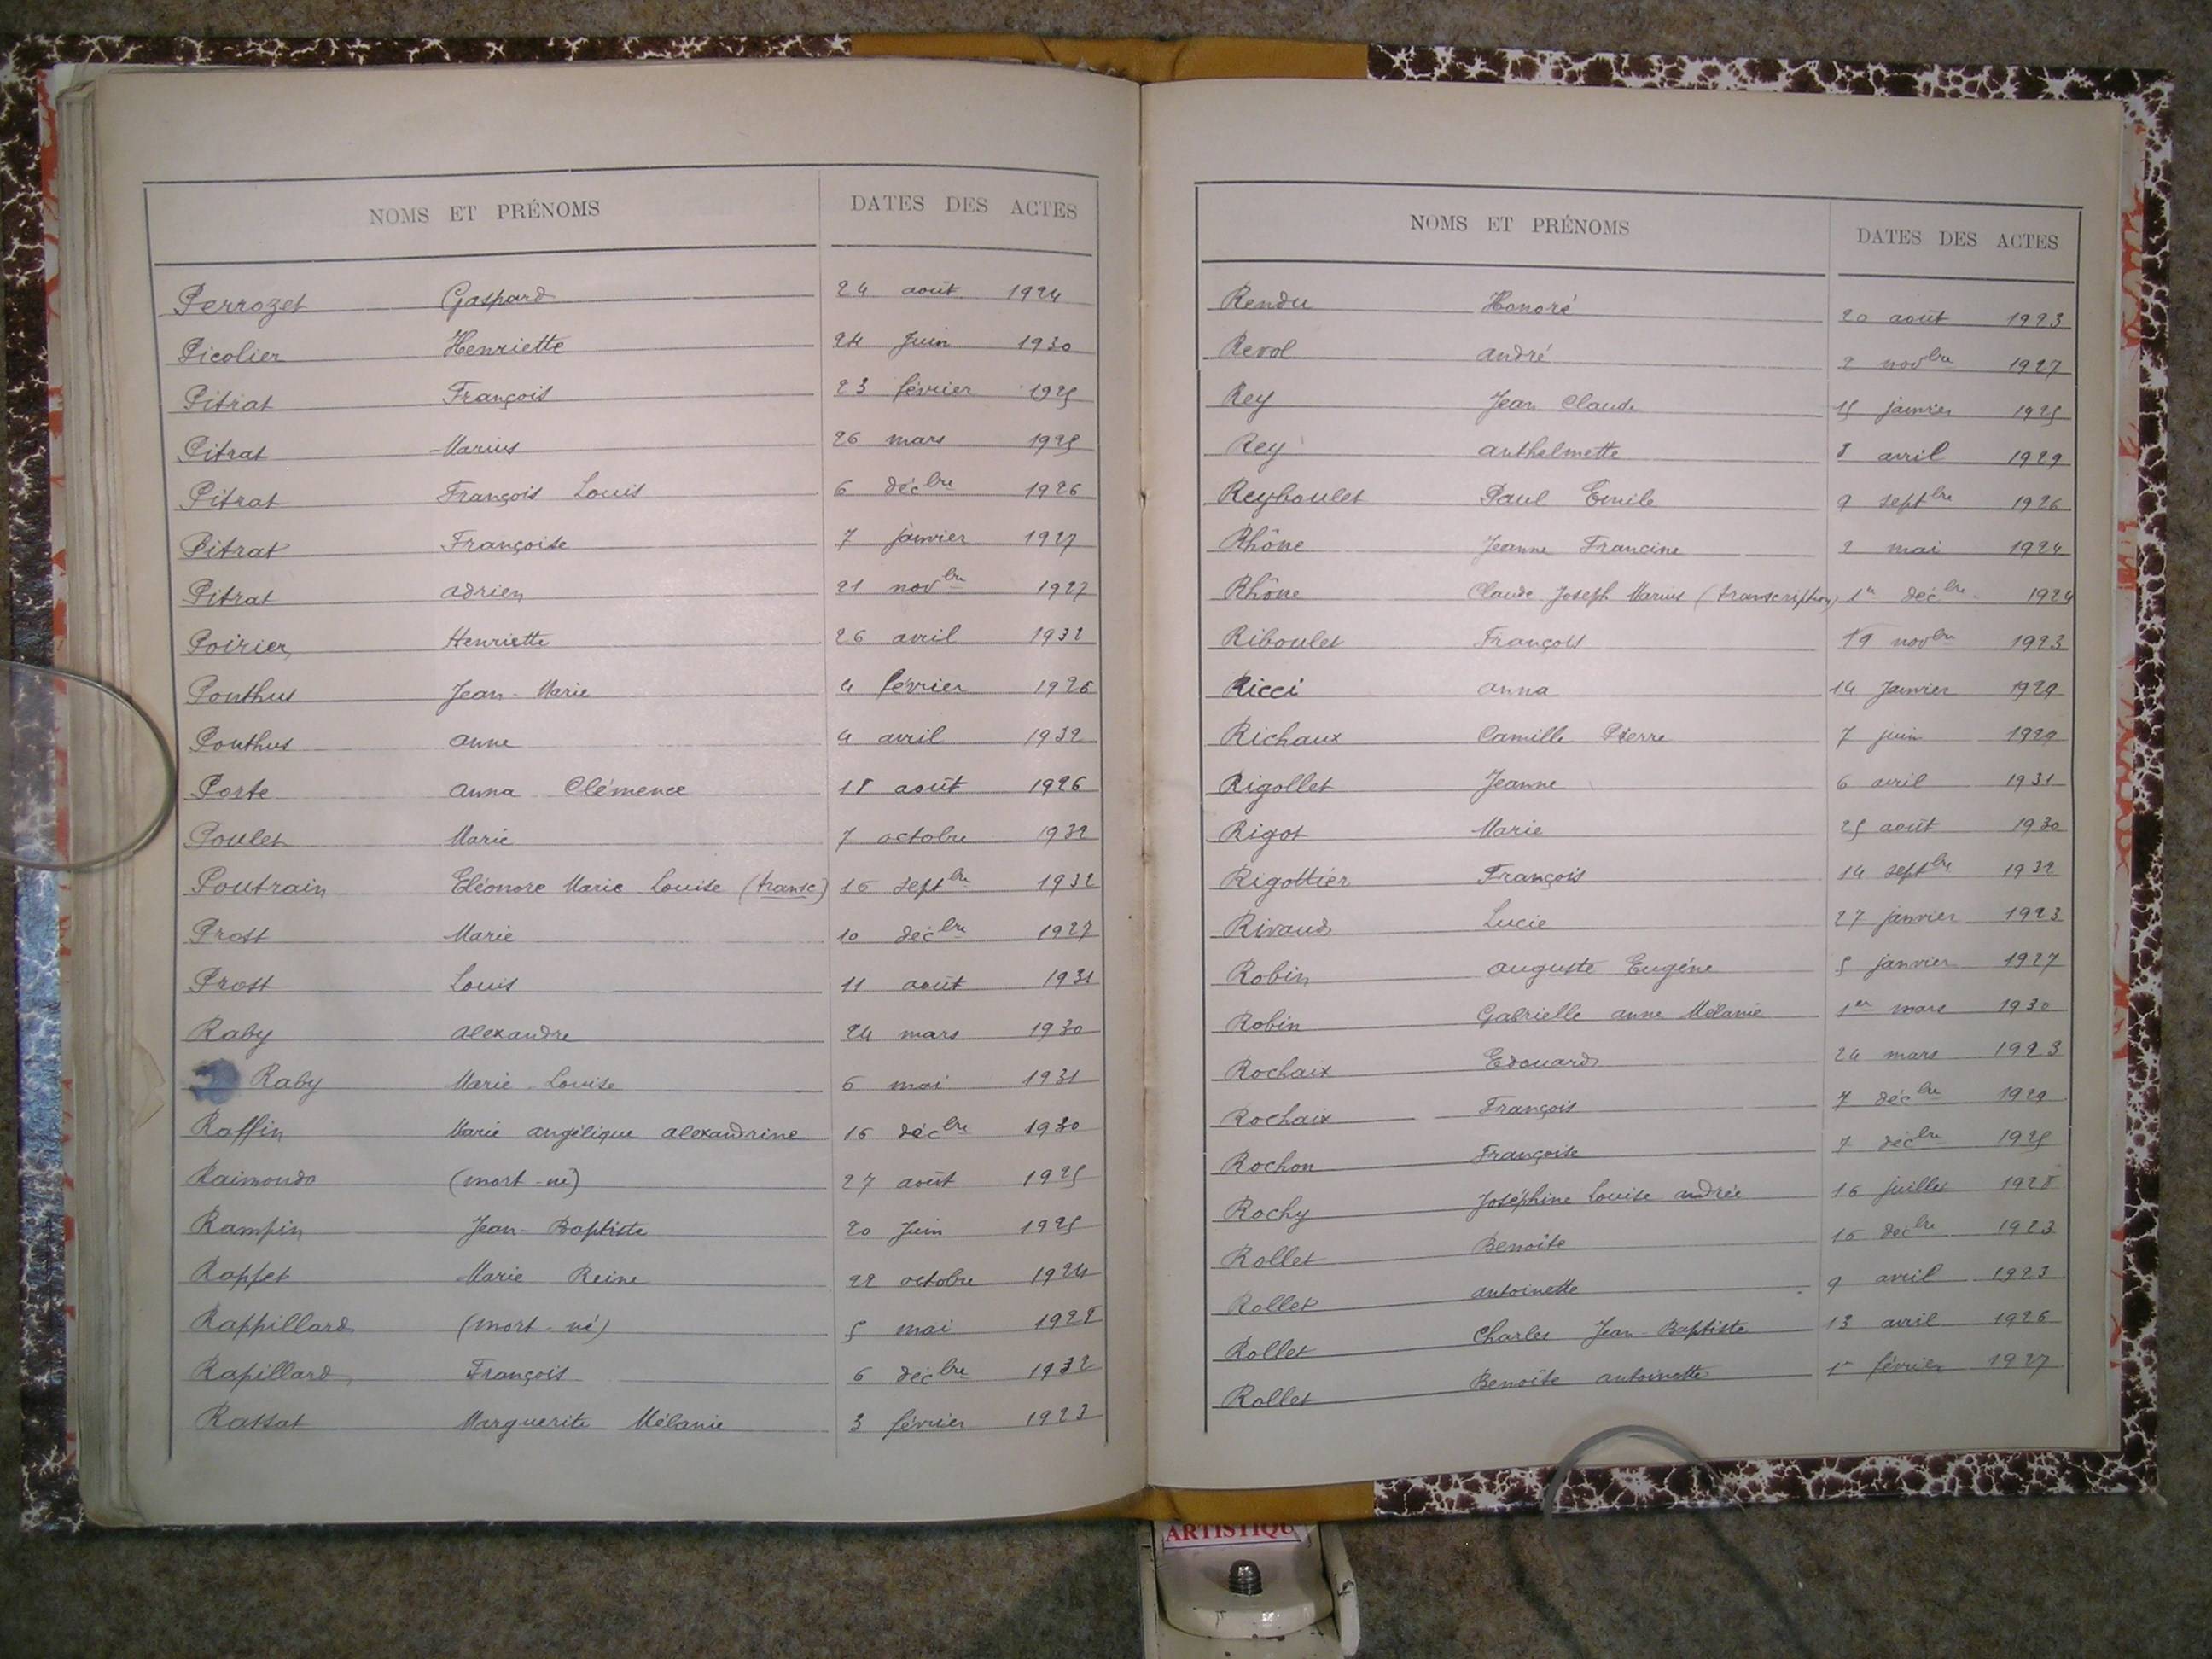 NOMS ET PRÉNOMS DATES DES ACTES
Perrozet Gaspard 24 août 1924
Picolier Henriette 24 Juin 1930
Pitrat François 23 février 1925
Pitrat Marius 26 mars 1925
Pitrat François Louis 6 décbre 1926
Pitrat Françoise 7 janvier 1927
Pitrat adrien 21 novbre 1927
Poirier Henriette 26 avril 1932
Ponthus Jean-Marie 4 février 1926
Ponthus anne 4 avril 1932
Porte anna Clémence 18 août 1926
Poulet Marie 7 octobre 1932
Poutrain Eléonore Marie Louise (transc) 16 septbre 1932
Prost Marie 10 décbre 1927
Prost Louis 11 août 1931
Raby alexandre 24 mars 1930
Raby Marie-Louise 6 mai 1931
Raffin Marie angélique alexandrine 16 décbre 1930
Raimondo (mort-né) 27 août 1925
Rampin Jean-Baptiste 20 Juin 1925
Rappet Marie Reine 22 octobre 1924
Rappillard (mort-né) 5 mai 1928
Rapillard François 6 décbre 1932
Rassat Marguerite Mélanie 3 février 1923
NOMS ET PRÉNOMS DATES DES ACTES
Rendu Honoré 20 août 1923
Revol andré 2 novbre 1927
Rey Jean Claude 15 janvier 1925
Rey anthelmette 8 avril 1929
Reyboulet Paul Emile 9 septbre 1926
Rhône Jeanne Francine 2 mai 1924
Rhône Claude Joseph Marius (transcription) 1er décbre 1924
Riboulet François 19 novbre 1923
Ricci anna 14 Janvier 1929
Richaux Camille Pierre 7 juin 1929
Rigollet Jeanne 6 avril 1931
Rigot Marie 25 août 1930
Rigottier François 14 septbre 1932
Rivaud Lucie 27 janvier 1923
Robin auguste Eugène 5 janvier 1927
Robin Gabrielle anne Mélanie 1er mars 1930
Rochaix Edouard 24 mars 1923
Rochaix François 7 décbre 1929
Rochon Françoise 7 décbre 1925
Rochy Joséphine Louise andrée 16 juillet 1928
Rollet Benoîte 16 décbre 1923
Rollet antoinette 9 avril 1923
Rollet Charles Jean-Baptiste 13 avril 1926
Rollet Benoîte antoinette 1er février 1927
ARTISTIQU